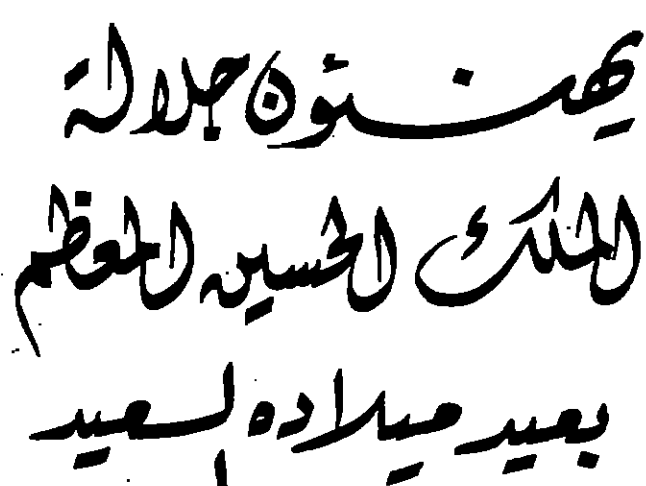 يهنئون جلالة
الملك الحسين المعظم
بعيد ميلاده السعيد